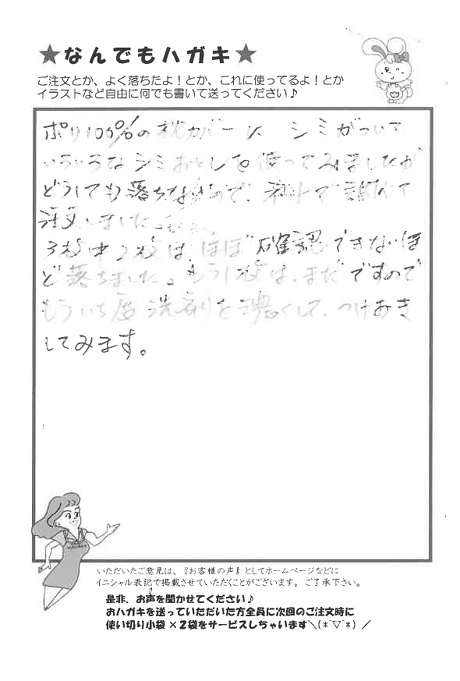 ★なんでもハガキ★
ご注文とか、よく落ちたよ！とか、これに使ってるよ！とか
イラストなど自由に何でも書いて送ってください♪
ポリ100%の枕カバーに シミがついて
いろいろなシミおとしを使ってみましたが
どうしても落ちないので、ネットで調べて
注文しました。
3枚中2枚は ほぼ確認できないほ
ど落ちました。もう1枚は、まだですので
もういち度 洗剤を濃くして、つけおき
してみます。
いただいたご意見は、『お客様の声』としてホームページなどに
イニシャル表記で掲載させていただくことがございます。ご了承下さい。
是非、お声を聞かせてください♪
おハガキを送っていただいた方全員に次回のご注文時に
使い切り小袋×2袋をサービスしちゃいます＼(*ﾟ▽ﾟ*)／